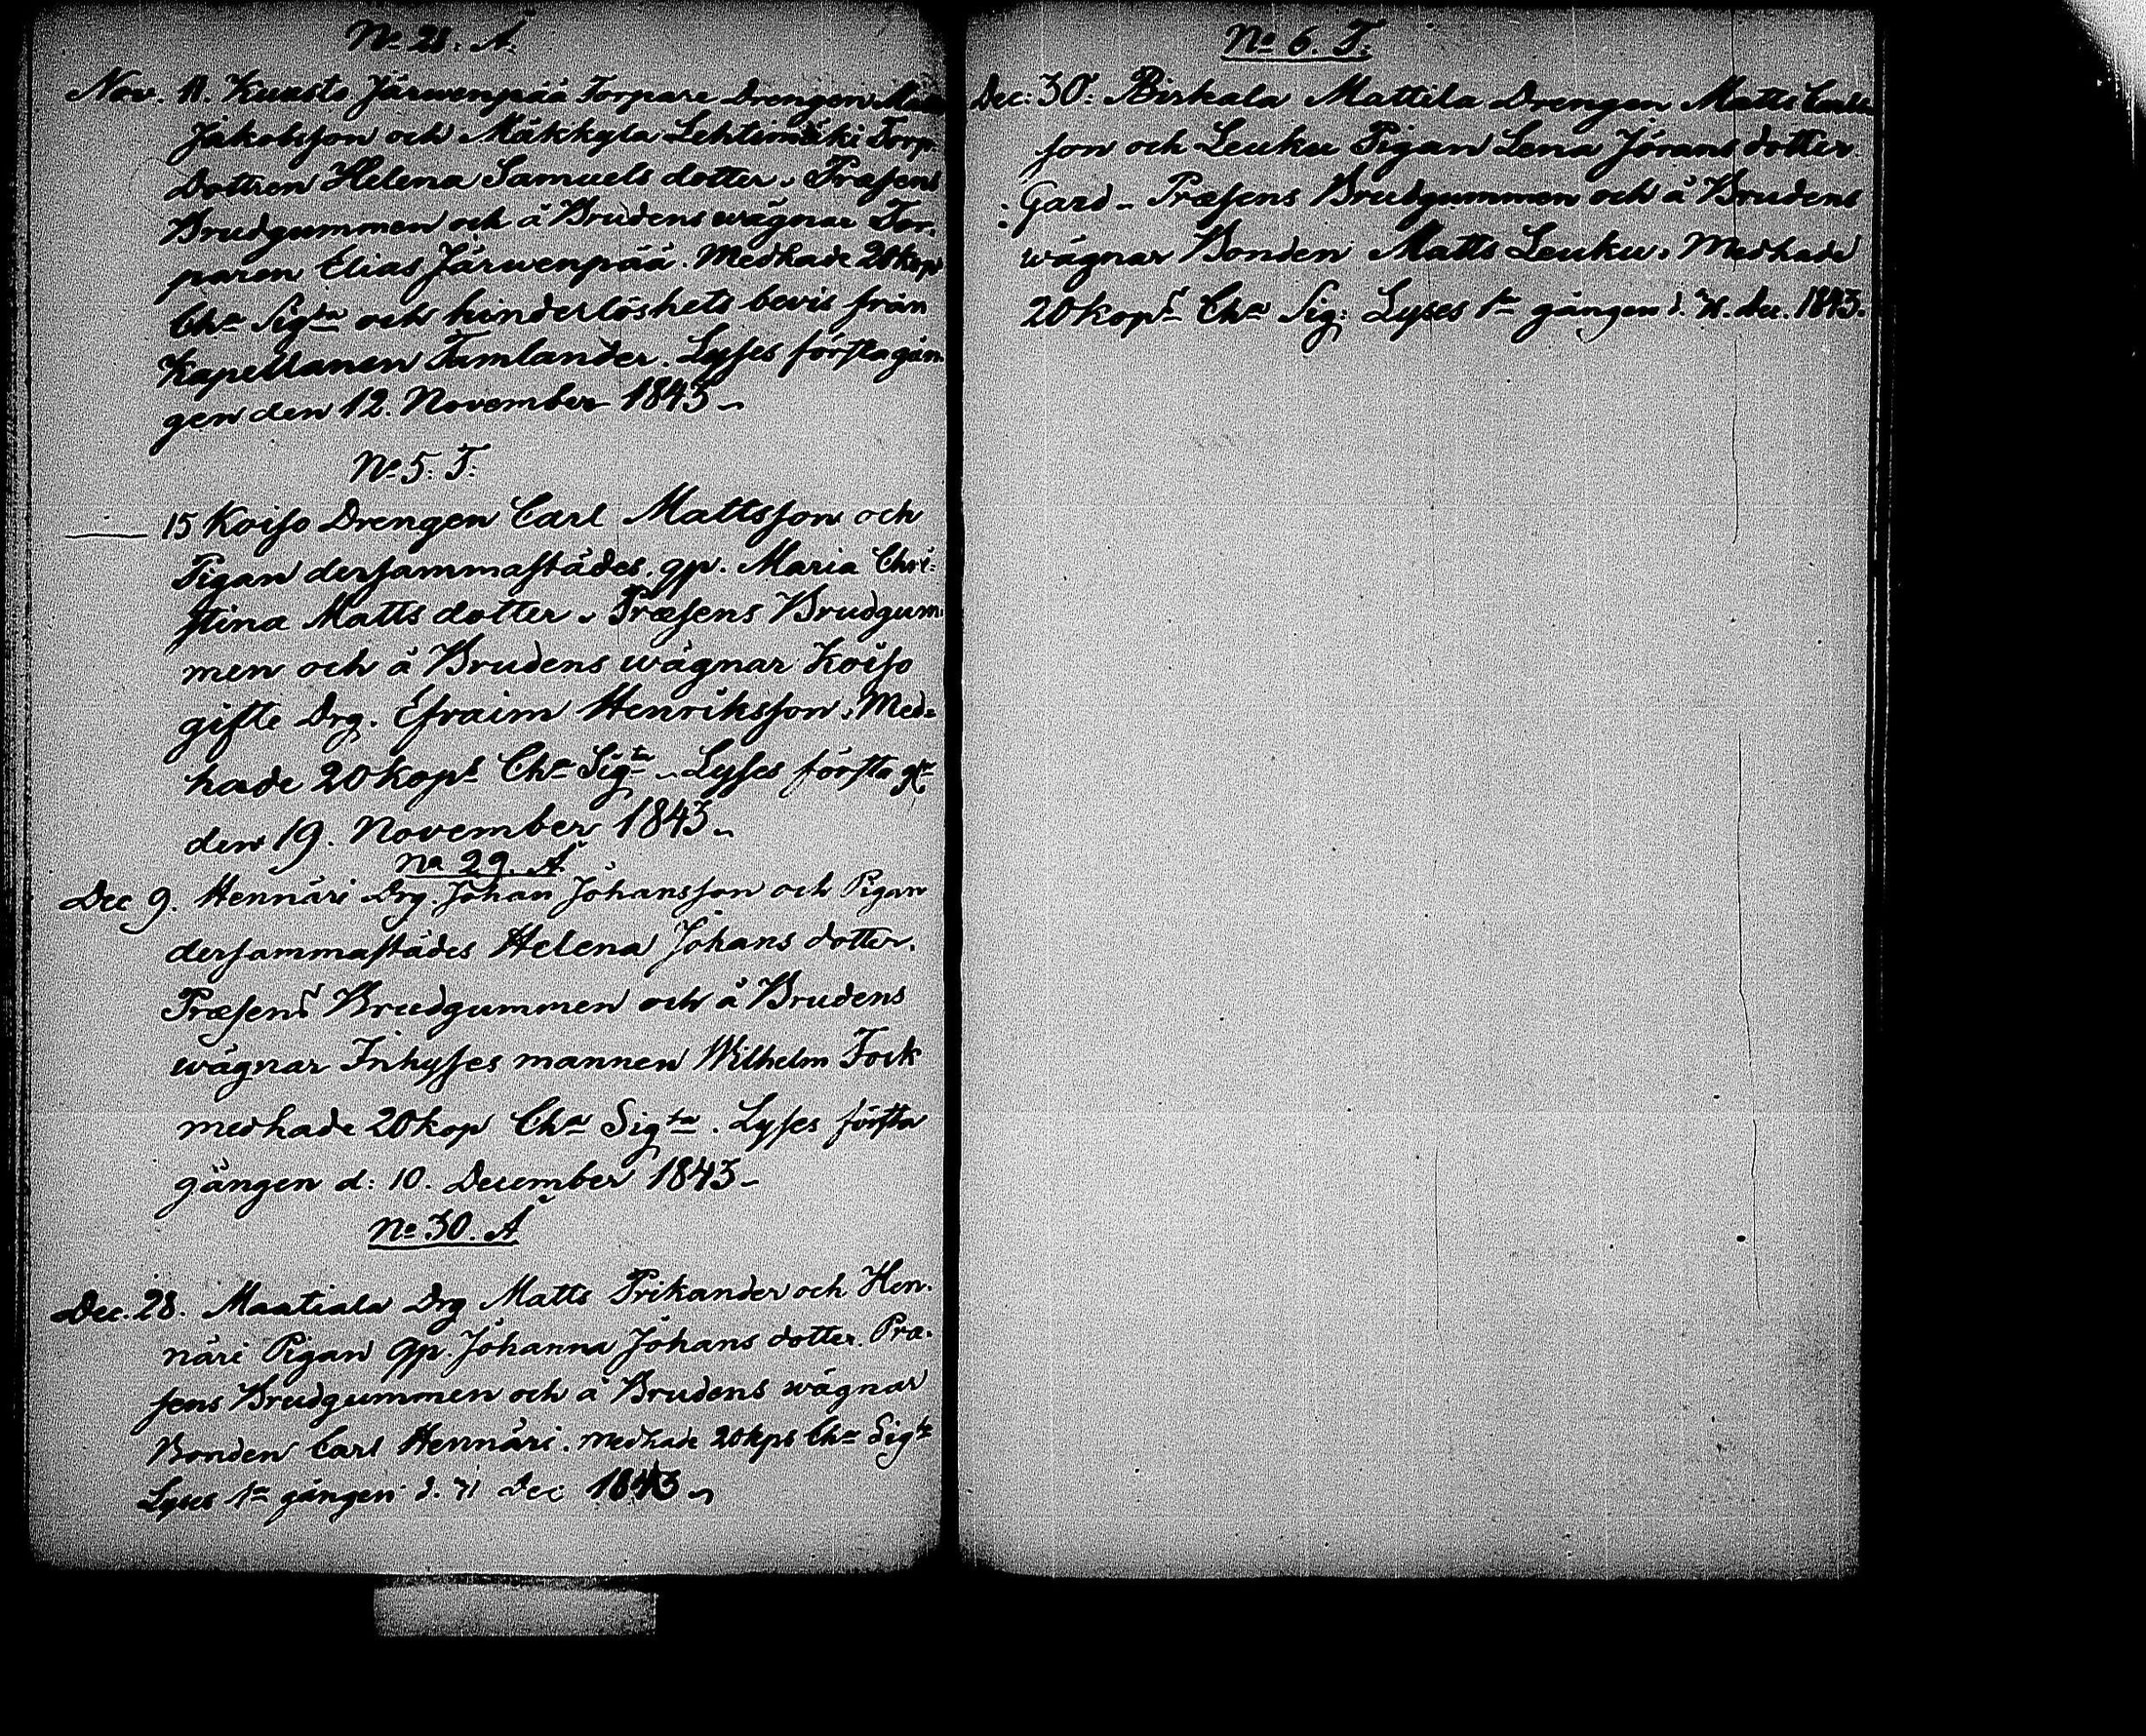 No 28. Å.
Nov. 11. Kuusto Järwenpää Torpare Drengen Matts
Jakobsson och Mäkkylä Lehtimäki Torp.
Dottren Helena Samuels dotter. Præsens
Brudgummen och å Brudens wägnar Tor.
paren Elias Järwenpää. Medhade 20 kops
Cha Sigta och hinderlöshets bevis från
Kapellanen Tamlander. Lyses första gån.
gen den 12. November 1843.
No 5. T:
15 Koiso Drengen Carl Mattsson och
Pigan dersammastädes, qp. Maria Chri:
stina Matts dotter. Præsens Brudgum
men och å Brudens wägnar Koiso
gifte Drg. Efraim Henriksson. Med=
hade 20 kops Cha Sigta Lyses första
den 19. November 1843.
No 29. Å
Dec 9. Hennäri Drg. Johan Johansson och Pigan
dersammastädes Helena Johans dotter.
Præsens Brudgummen och å Brudens
wägnar Inhyses mannen Wilhelm Fock
medhade 20 kop Cha Sigta. Lyses första
gången d: 10. December 1843
No 30. Å
Dec. 28. Maatiala Drg Matts Prikander och Hen.
näri Pigan qp. Johanna Johans dotter. Præ.
sens Brudgummen och å Brudens wägnar
Bonden Carl Hennäri. medhade 20 kps Cha Sigta
Lyses 1a gången d. 31 Dec 1843.
No 6. T:
Dec: 30. Birkala Mattila Drengen Matts Carls
son och Leuku Pigan Lena Jörans dotter
Gard. Præsens Brudgummen och å Brudens
wägnar Bonden Matts Leuku. Medhade
20 kops Cha Sig: Lyses 1a gången d. 31. dec. 1843.